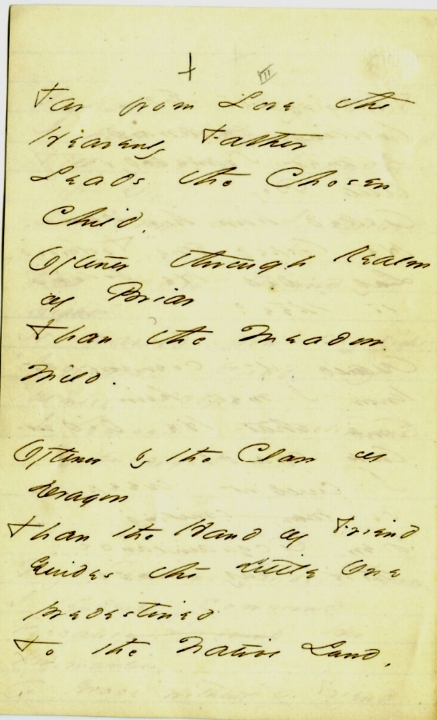 + III
Far from Love the
Heavenly Father
Leads the Chosen
Child.
Oftener through Realm
of Briar
Than the Meadow
mild.
Oftener by the Claw of
Dragon
Than the Hand of Friend
Guides the Little One
predestined
To the Native Land.